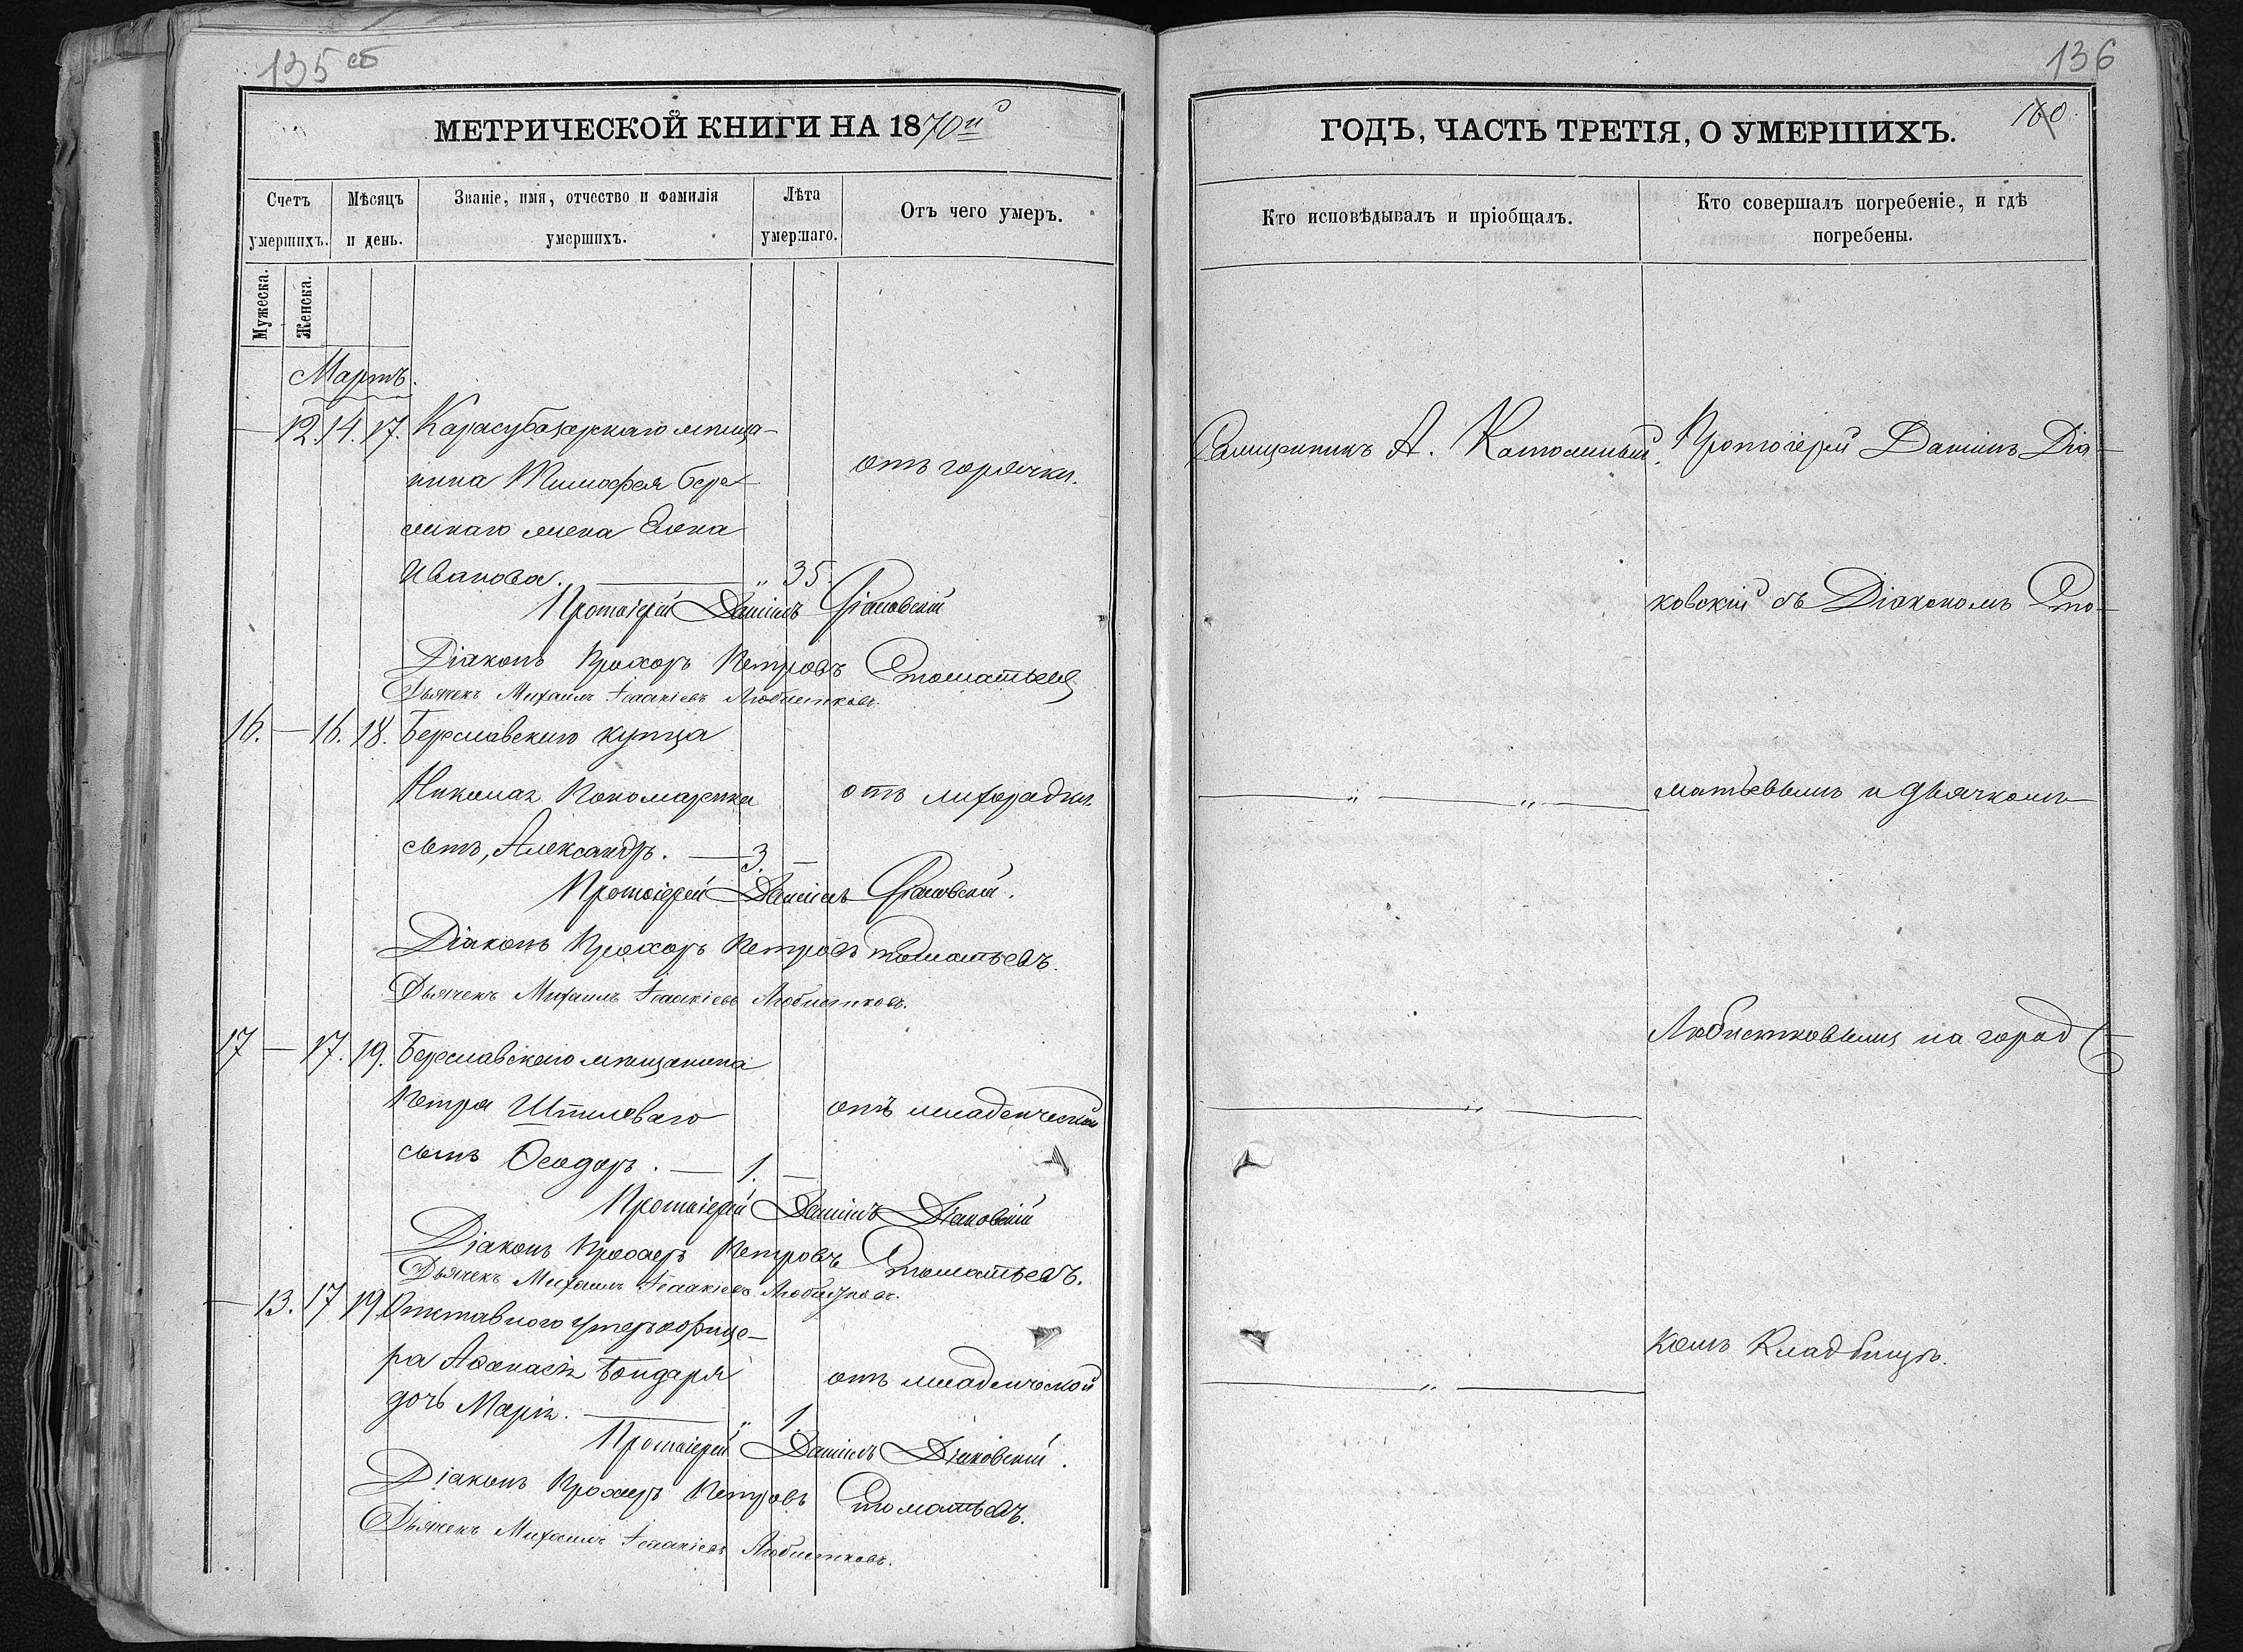 135 об
МЕТРИЧЕСКОЙ КНИГИ НА 1870й
Счетъ умершихъ.
Мѣсяцъ и день.
Званіе, имя, отчество и фамилія умершихъ.
Лѣта умершаго.
Отъ чего умеръ.
Мужеска.
Женска.
Мартъ.
— 12. 14. 17. Карасубазарскаго мѣща-
нина Тимофея
жена Елена
отъ горячки.
Иванова. — „ 35.
Протоіерей Даніилъ Діаковскій
Діаконъ Прохоръ Петровъ Стоматьевъ
Дьячекъ Михаилъ Ісаакіевъ Любистковъ.
16. — 16. 18. Бериславскаго купца
Николая Пономаренка
отъ лихорадки
сынъ, Александръ. — 3. —
Протоіерей Даніилъ Діаковскій.
Діаконъ Прохоръ Петровъ Стоматьевъ.
Дьячекъ Михаилъ Ісаакіевъ Любистковъ.
17 — 17. 19. Бериславскаго мѣщанина
Петра
отъ младенческой
сынъ Ѳеодоръ. — 1. —
Протоіерей Даніилъ Діаковскій
Діаконъ Прохоръ Петровъ Стоматьевъ.
Дьячекъ Михаилъ Ісаакіевъ Любистковъ.
— 13. 17 19. Отставного унтеръ офице-
ра Аѳанасія Бондаря
отъ младенческой
дочь Марія. — „ 1.
Протоіерей Даніилъ Діаковскій.
Діаконъ Прохоръ Петровъ Стоматьевъ.
Дьячекъ Михаилъ Ісаакіевъ Любистковъ.
136
160
ГОДЪ, ЧАСТЬ ТРЕТІЯ, О УМЕРШИХЪ.
Кто исповѣдывалъ и пріобщалъ.
Кто совершалъ погребеніе, и гдѣ погребены.
Священникъ А.
Протоіерей Даніилъ Діа-
ковскій съ Діакономъ Сто-
матьевымъ и дьячкомъ
Любистковымъ на город
комъ Кладбищѣ.